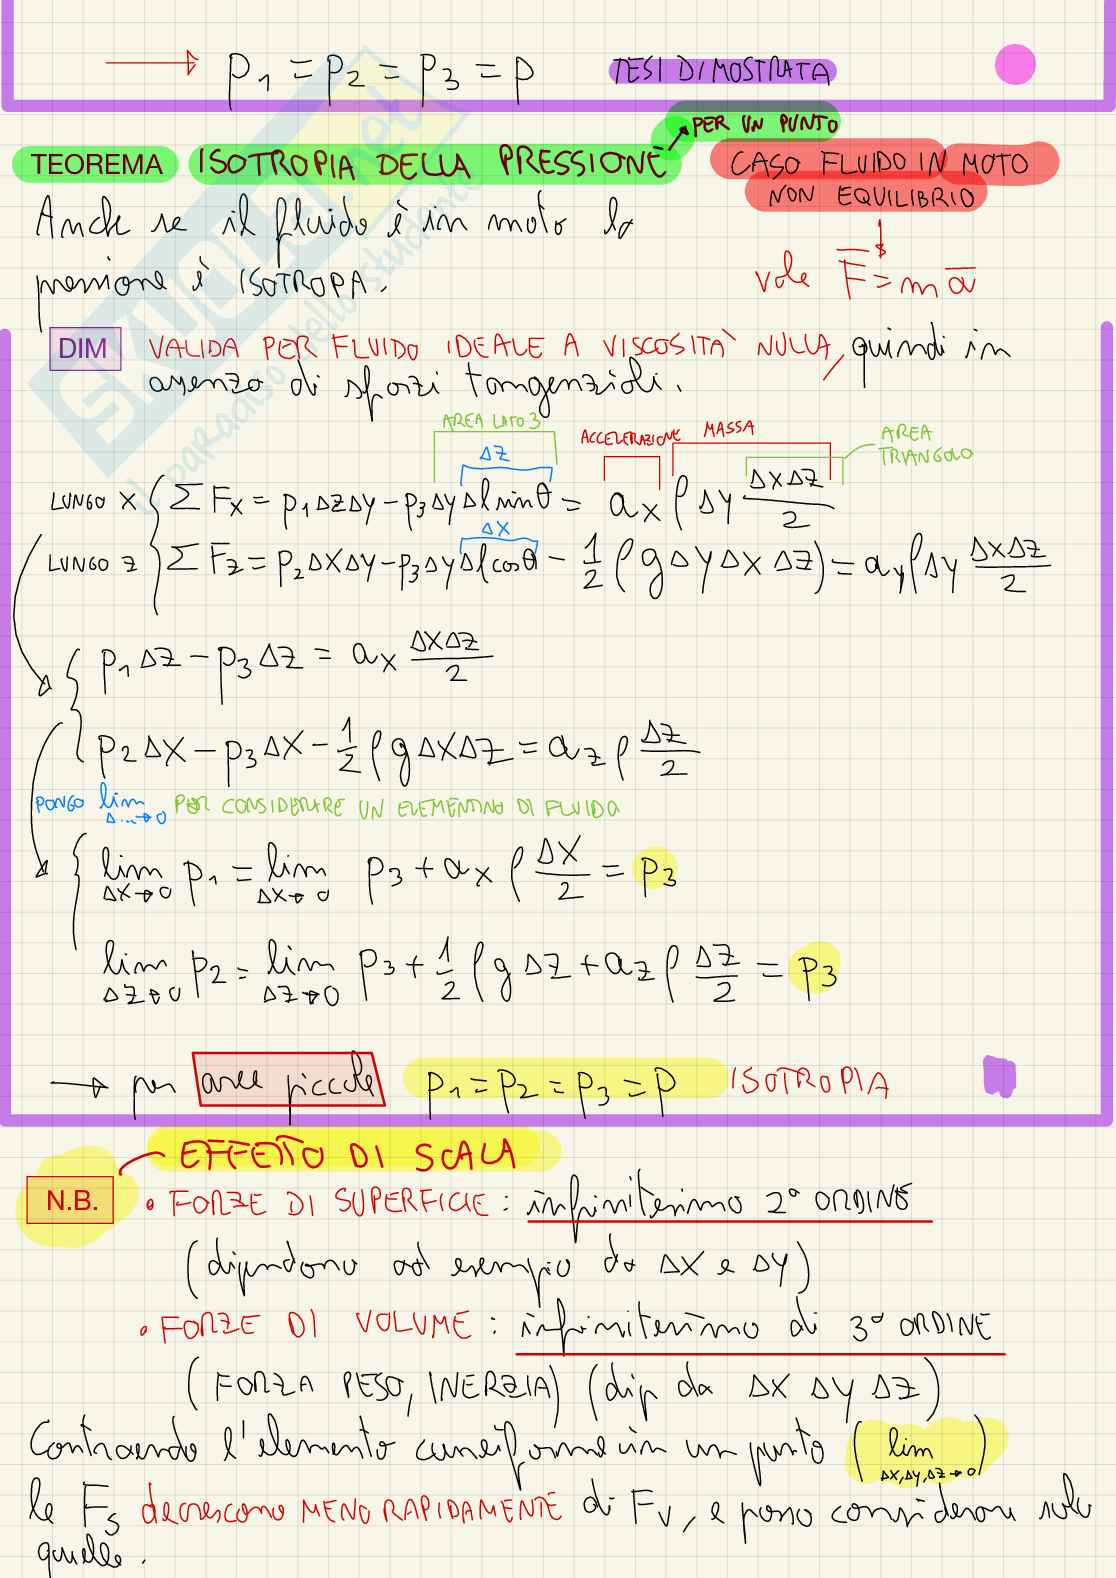 → p₁ = p₂ = p₃ = p TESI DIMOSTRATA
PER UN PUNTO
TEOREMA ISOTROPIA DELLA PRESSIONE CASO FLUIDO IN MOTO
NON EQUILIBRIO
Anche se il fluido è in moto la
pressione è ISOTROPA.
vale F̅ = m a̅
DIM VALIDA PER FLUIDO IDEALE A VISCOSITA' NULLA, quindi in
assenza di sforzi tangenziali.
AREA LATO 3
ACCELERAZIONE MASSA AREA
TRIANGOLO
ΔZ
LUNGO X { Σ Fx = p₁ΔZΔy − p₃Δy Δl sinθ = ax ρ Δy ΔXΔZ/2
ΔX
LUNGO Z { Σ Fz = p₂ΔXΔy − p₃Δy Δl cosθ − 1/2 (ρgΔyΔXΔZ) = ay ρ Δy ΔXΔZ/2
p₁ΔZ − p₃ΔZ = ax ΔXΔZ/2
p₂ΔX − p₃ΔX − 1/2 ρgΔXΔZ = az ρ ΔZ/2
PONGO lim Δ...→0 PER CONSIDERARE UN ELEMENTINO DI FLUIDO
lim ΔX→0 p₁ = lim ΔX→0 p₃ + ax ρ ΔX/2 = p₃
lim ΔZ→0 p₂ = lim ΔZ→0 p₃ + 1/2 ρgΔZ + az ρ ΔZ/2 = p₃
→ per aree piccole p₁ = p₂ = p₃ = p ISOTROPIA
EFFETTO DI SCALA
N.B. • FORZE DI SUPERFICIE : infinitesimo 2° ORDINE
(dipendono ad esempio da ΔX e ΔY)
• FORZE DI VOLUME : infinitesimo di 3° ORDINE
(FORZA PESO, INERZIA) (dip da ΔX ΔY ΔZ)
Contraendo l'elemento cuneiforme in un punto (lim ΔX,ΔY,ΔZ→0)
le Fs decrescono MENO RAPIDAMENTE di Fv, e posso considerare solo
quelle.